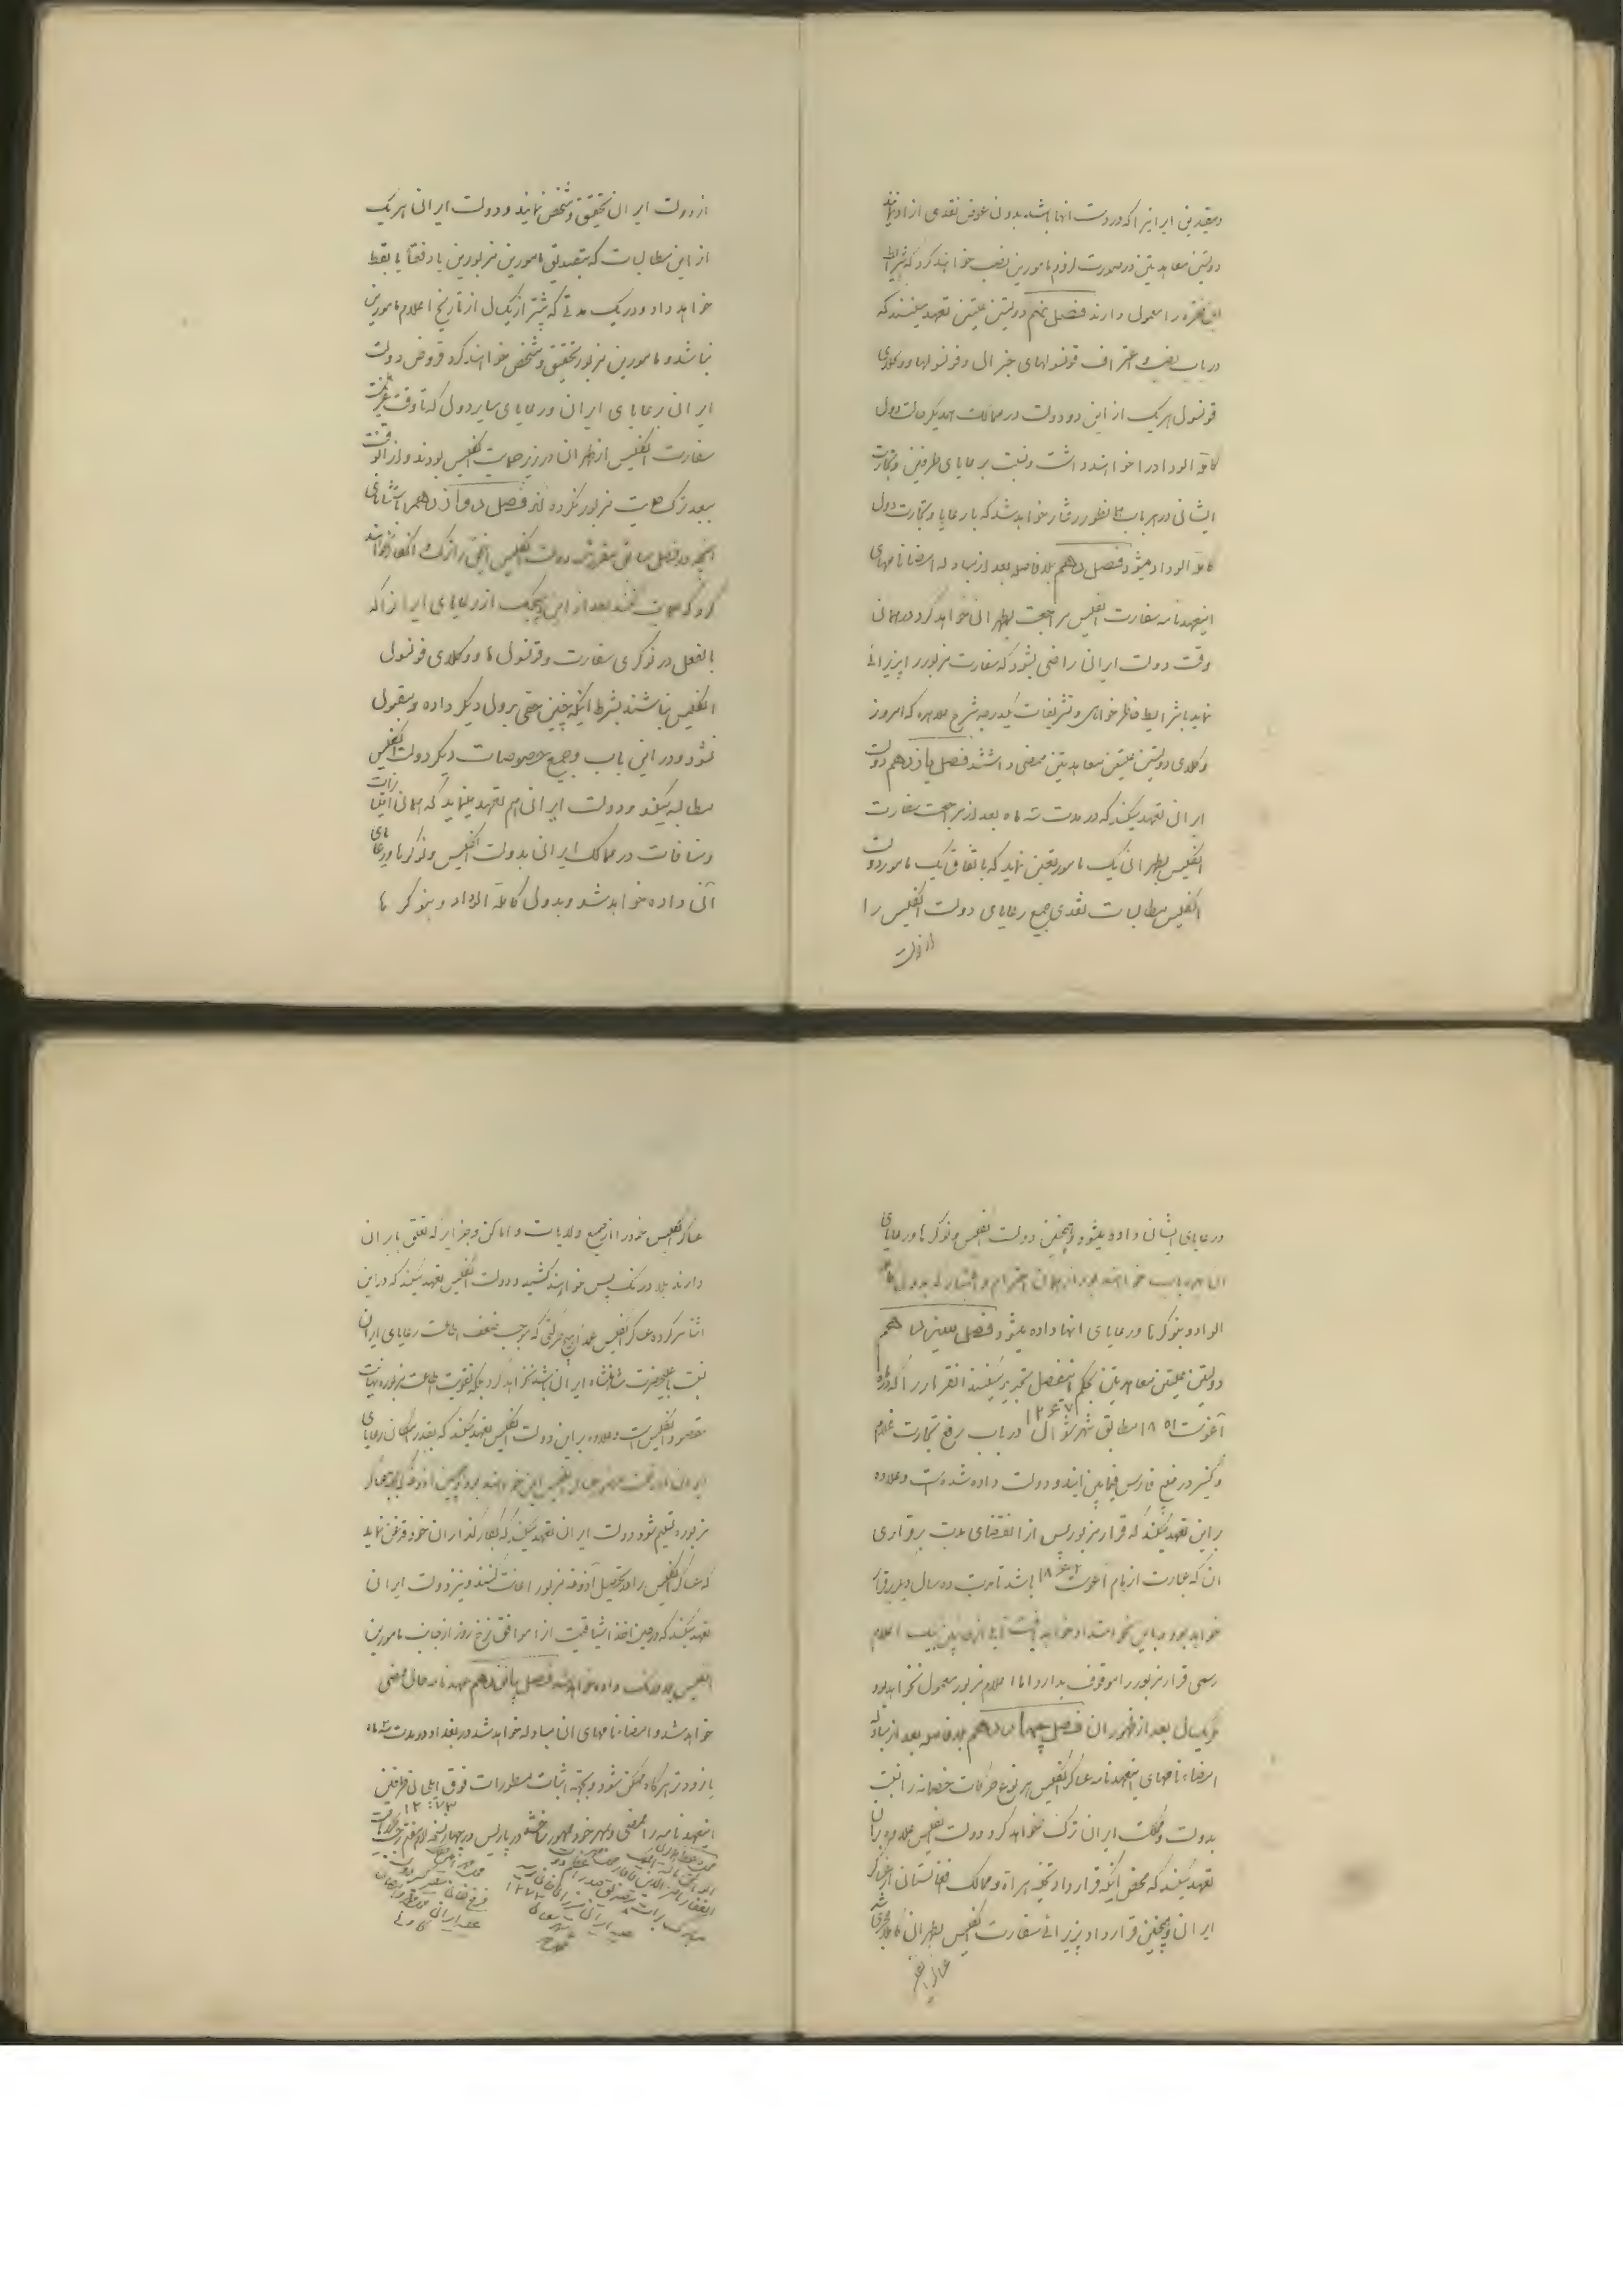 ومقیدین ایرانیرا که در دست انها باشند بدون عوض نقدی ازاد نمایند
دولتین معاهدیتین در صورت لزوم مامورین نصب خواهند کرد که شرایط
این فقره را معمول دارند فصل نهم دولتین علیتین تعهد میکنند که
در باب نصب و اعتراف قونسولهای جنرال و قونسولها و وکلای
قونسول هریک از این دو دولت در ممالک همدیگر حالت دول
کاملة الوداد را خواهند داشت و نسبت برعایای طرفین و تجارت
ایشان در هر باب همانطور رفتار خواهد شد که با رعایا و تجارت دول
کاملة الوداد میشود فصل دهم بلا فاصله بعد از مبادله امضا نامهای
اینعهدنامه سفارت انگلیس مراجعت بطهران خواهد کرد در همان
وقت دولت ایران راضی میشود که سفارت مزبور را پذیرائی
نماید با شرایط خاطر خواهی و تشریفات که در شرح علاحده که امروز
وکلای دولتین علیتین معاهدیتین ممضی داشتند فصل یازدهم دولت
ایران تعهد میکند که در مدت سه ماه بعد از مراجعت سفارت
انگلیس بطهران یک مامور تعیین نماید که باتفاق یک مامور دولت
انگلیس مطالبات نقدی جمیع رعایای دولت انگلیس را
از دولت
از دولت ایران تحقیق و تشخیص نمایند و دولت ایران هریک
از این مطالبات که بتصدیق مامورین مزبورین یا دفعتا یا بقسط
خواهد داد در یک مدتی که بیشتر از یکسال از تاریخ اعلام مامورین
نباشد و مامورین مزبور تحقیق و تشخیص خواهند کرد قروض دولت
ایران برعایای ایران و رعایای سایر دول که تا وقت عزیمت
سفارت انگلیس از طهران در زیر حمایت انگلیس بودند و از آنوقت
ببعد ترک حمایت مزبور نکرده اند فصل دوازدهم باستثنای
آنچه در فصل سابق مقرر شد دولت انگلیس حق را ترک و انکار خواهد
کرد که حمایت نکند بعد از این هیچیک از رعایای ایرانرا که
بالفعل در نوکری سفارت و قونسول ها و وکلای قونسول
انگلیس نباشند بشرط اینکه چنین حقی بدول دیگر داده و قبول
نشود و در این باب و جمیع خصوصات دیگر دولت انگلیس
مطالبه میکند و دولت ایران هم تعهد مینماید که همان امتیازات
و معافات در ممالک ایران بدولت انگلیس و نوکرها و رعایای
آن داده خواهد شد و بدول کاملة الوداد و بنوکر ها
و رعایای ایشان داده میشود و همچنین دولت انگلیس و نوکرها و رعایای
آن بهره یاب خواهند بود از همان احترام و اعتبار که بدول کاملة
الوداد و بنوکرها و رعایای انها داده میشود فصل سیزدهم
دولتین علیتین معاهدیتین بحکم اینفصل تجدید میکنند انقرار را که در ماه
آغوست ۱۸۵۱ مطابق شهر شوال ۱۲۶۷ در باب رفع تجارت غلام
و کنیز در خلیج فارس فیمابین ایندو دولت داده شده است و علاوه
بر این تعهد میکنند که قرار مزبور پس از انقضای مدت برقراری
آن که عبارت از ماه اغوست ۱۸۶۲ باشد تا مدت ده سال دیگر برقرار
خواهد بود و باین نحو امتداد خواهد یافت تا یکی از طرفین بیک اعلام
رسمی قرار مزبور را موقوف بدارد اما اعلام مزبور معمول نخواهد بود
مگر یکسال بعد از ظهور ان فصل چهاردهم بلا فاصله بعد از مبادله
امضاء نامهای اینعهدنامه عساکر انگلیس هر نوع حرکات خصمانه را نسبت
بدولت و مملکت ایران ترک خواهد کرد و دولت انگلیس علاوه بران
تعهد میکند که محض اینکه قرارداد تخلیه هراة و ممالک افغانستان از عساکر
ایران و همچنین قرارداد پذیرائی سفارت انگلیس بطهران کاملا مجری شد
عساکر انگلیس
عساکر انگلیس خود را از جمیع ولایات و اماکن و جزایر که تعلق بایران
دارند بلا درنگ پس خواهند کشید و دولت انگلیس تعهد میکند که در این
اثنا سرکرده عساکر انگلیس عمدا هیچ حرکتی که موجب ضعف اطاعت رعایای ایران
نسبت باعلیحضرت شاهنشاه ایران باشد نخواهد کرد بلکه تقویت اطاعت مزبوره نهایت
مقصود انگلیس است و علاوه بر این دولت انگلیس تعهد میکند که بقدر امکان رعایای
ایران از زحمت حضور عساکر انگلیس ایمن خواهند بود و همچنین اذوقه که بجهة عساکر
مزبوره تسلیم شود دولت ایران تعهد میکند که بکارگذاران خود قدغن نماید
که عساکر انگلیس را در تحصیل آذوقه مزبور اعانت کنند و نیز دولت ایران
تعهد میکند که در حین اخذ اشیا قیمت از اموافق نرخ روز از جانب مامورین
انگلیس بلا درنگ داده خواهد شد فصل پانزدهم عهدنامه حال ممضی
خواهد شد و امضاء نامهای ان مبادله خواهد شد در بغداد در مدت سه ماه
یا زودتر هرگاه ممکن شود و بجهة اثبات مسطورات فوق ایلچیان طرفین
اینعهدنامه را ممضی و بمهر خود ممهور ساختند در پاریس در چهار نسخه
۱۲۷۳